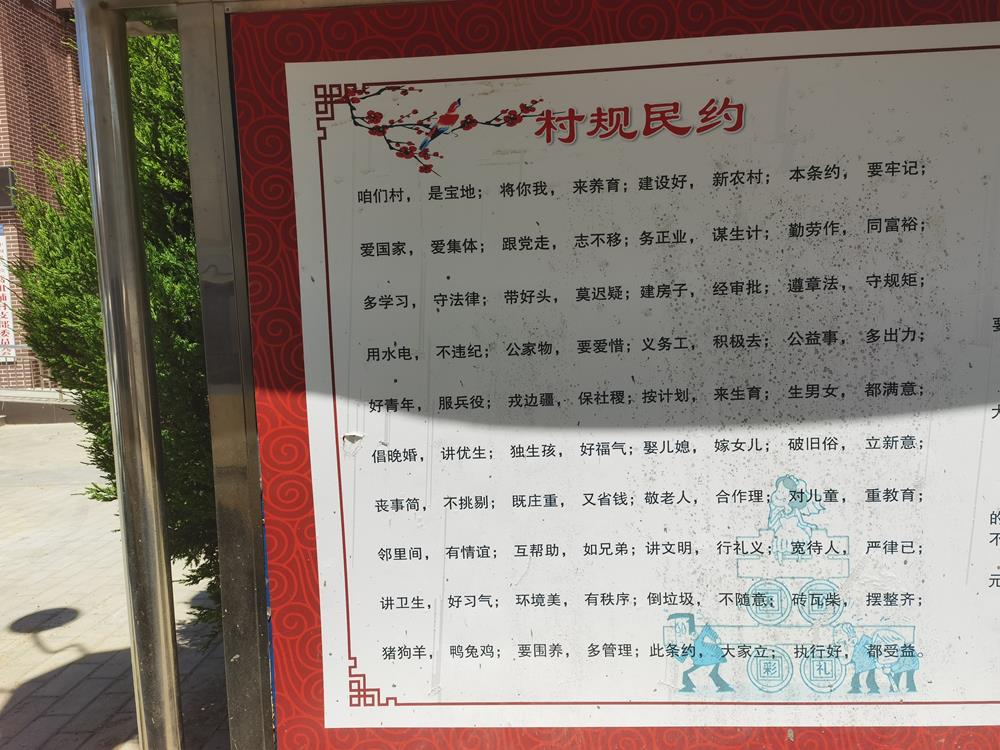 村规民约
咱们村， 是宝地； 将你我， 来养育；建设好， 新农村； 本条约， 要牢记；
爱国家， 爱集体； 跟党走， 志不移；务正业， 谋生计； 勤劳作， 同富裕；
多学习， 守法律； 带好头， 莫迟疑；建房子， 经审批； 遵章法， 守规矩；
用水电， 不违纪； 公家物， 要爱惜；义务工， 积极去； 公益事， 多出力；
好青年， 服兵役； 戎边疆， 保社稷；按计划， 来生育； 生男女， 都满意；
倡晚婚， 讲优生； 独生孩， 好福气；娶儿媳， 嫁女儿； 破旧俗， 立新意；
丧事简， 不挑剔； 既庄重， 又省钱；敬老人， 合作理； 对儿童， 重教育；
邻里间， 有情谊； 互帮助， 如兄弟；讲文明， 行礼义； 宽待人， 严律己；
讲卫生， 好习气； 环境美， 有秩序；倒垃圾， 不随意； 砖瓦柴， 摆整齐；
猪狗羊， 鸭兔鸡； 要围养， 多管理；此条约， 大家立； 执行好， 都受益。
彩 礼
支部委员会